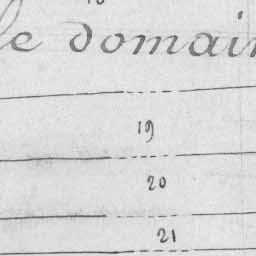 le domain
19
20
21